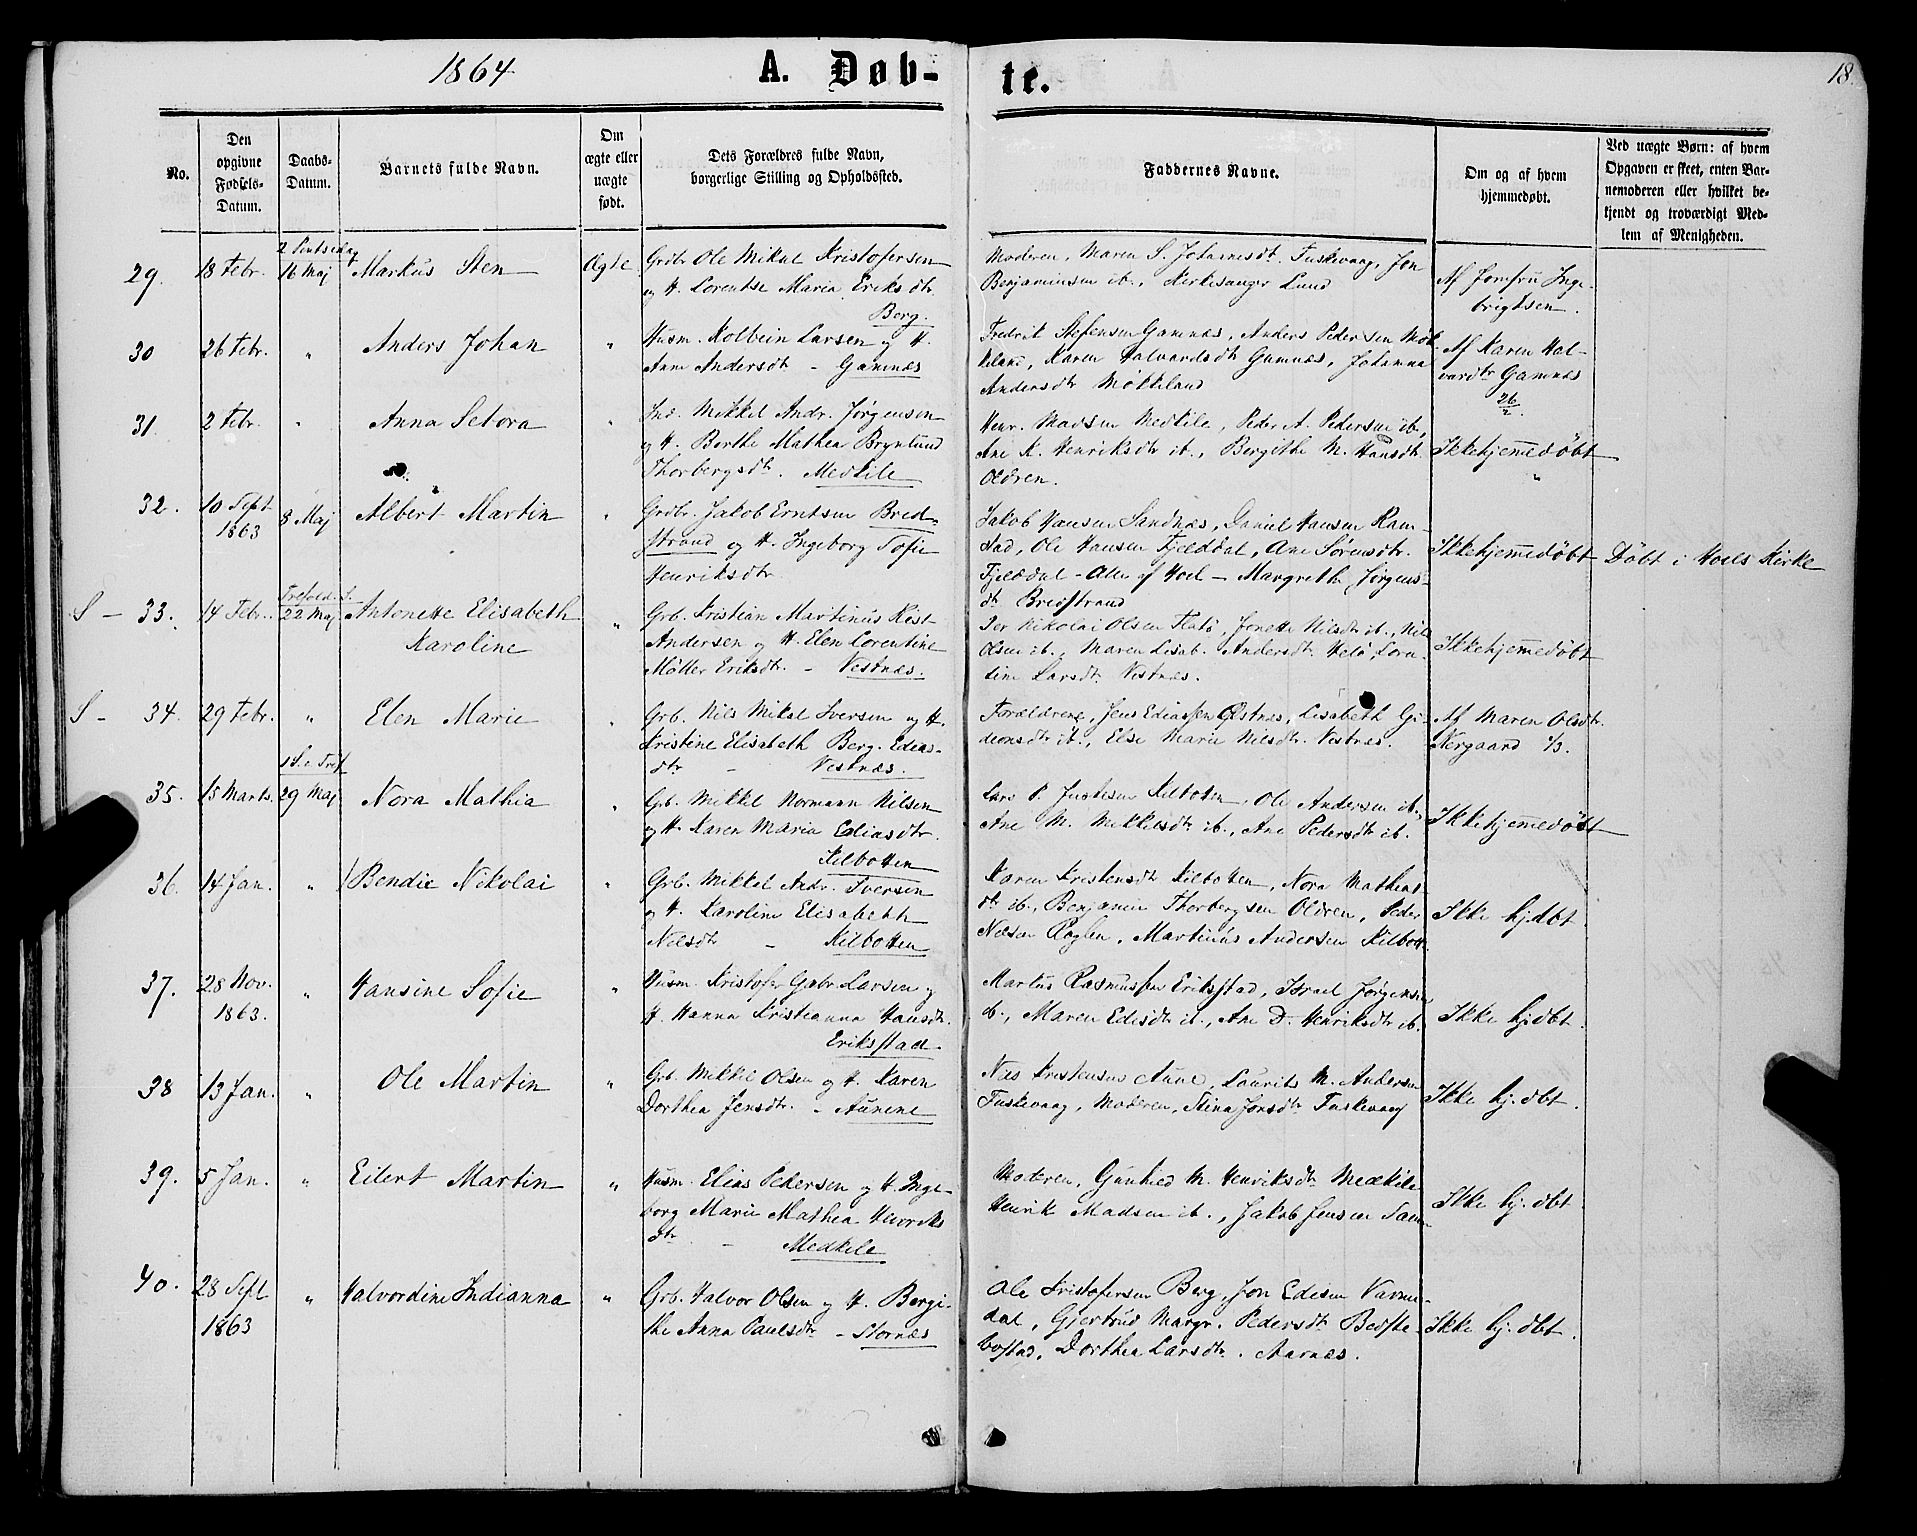 1864
A. Døb-
te.
18.
No.
Den
opgivne
Fødsels-
Datum.
Daabs-
Datum.
Barnets fulde Navn.
Om
ægte eller
uægte
født.
Dets Forældres fulde Navn,
borgerlige Stilling og Opholdssted.
Faddernes Navne.
Om og af hvem
hjemmedøbt.
Ved uægte Børn: af hvem
Opgaven er skeet, enten Bar-
nemoderen eller hvilket be-
kjendt og troværdigt Med-
lem af Menigheden.
29.
18 Febr.
2 Pintsedag
16 Maj
Markus Sten
Ægte
Grdbr. Ole Mikal Kristofersen
og H. Lorentse Maria Eriksdtr.
Berg.
Moderen, Maren S. Johannesdt. Fuskevaag, Jon
Benjaminsen ib., Kirkesanger Lund
Af Jomfru Inge-
brigtsen.
30
26 Febr.
"
Anders Johan
"
Husm. Kolbein Larsen og H.
Anne Andersdt - Gamnæs
Fredrik Stefensen Gamnæs, Anders Pedersen Møk-
keland, Karen Halvardsdt Gamnæs, Johanna
Andersdtr Møkkeland
Af Karen Hal-
vardtr Gamnæs
26/2.
31.
2 Febr.
"
Anna Setora
"
Ind. Mikkel Andr. Jørgensen
og H. Berthe Mathea Brynlund
Thorbergsdtr. Medkile
Henr. Madsen Medkile, Peder A. Pedersen ib.,
Ane K. Henriksdt ib., Bergithe M. Hansdt
Oldren.
Ikkehjemmedøbt
"
32.
10 Sept
1863
8 Maj
Albert Martin
"
Grdbr. Jakob Erntsen Bred-
strand og H. Ingeborg Sofie
Henriksdtr.
Jakob Hansen Sandnæs, Daniel Hansen Ram-
stad, Ole Hansen Fjelddal, Ane Sørensdtr.
Fjelddal - Alle af Hoel - Margrethe Jørgens-
dt Bredstrand
Ikkehjemmedøbt
Døbt i Hoels Kirke
S - 33.
14 Febr.
Trefold. S.
22 Maj
Antonette Elisabeth
Karoline
"
Grb. Kristian Martinus Kost
Andersen og H. Elen Lorentine
Møller Eriksdt. - Vestnæs.
Per Nikolai Olsen Flatø, Jonette Nilsdt ib., Nils
Olsen ib., Maren Lisab. Andersdt. Helø, Loren-
tine Larsdt. Vestnæs.
Ikkehjemmedøbt
S - 34.
29 Febr.
"
Elen Marie
"
Grb. Nils Mikal Iversen og H.
Kristine Elisabeth Berg. Edias-
dtr - Vestnæs.
Forældrene, Jens Ediassen Østnæs, Lisabeth Gi-
deonsdtr ib., Else Marie Nilsdtr. Vestnæs.
Af Maren Olsdtr.
Nergaard 1/3.
35.
15 Marts.
1 S. e. Tref
29 Maj
Nora Mathia
"
Grb. Mikkel Normann Nilsen
og H. Karen Maria Ediasdtr.
Kilbotten
Lars P. Justesen Kilbotten, Ole Andersen ib.,
Ane M. Mikkelsdtr ib., Ane Pedersdtr ib.
Ikkehjemmedøbt
36.
14 Jan.
"
Bendix Nikolai
"
Grb. Mikkel Andr. Iversen
og H. Karoline Elisabeth
Nilsdtr - Kilbotten
Karen Kristensdt Kilbotten, Nora Mathias-
dtr ib., Benjamin Thorbergsen Oldren, Peder
Nilsen Røglen, Martinus Andersen Kilbott.
Ikke hj.dbt.
37.
28 Nov.
1863.
"
Hansine Sofie
"
Husm. Kristofer Gabr. Larsen og
H. Hanna Kristianna Hansdt.
Eriksstad.
Martus Rasmussen Eriksstad, Israel Jørgensen
ib., Maren Edisdtr ib., Ane D. Henriksdtr ib.
Ikke hj.dbt.
38
13 Jan.
"
Ole Martin
"
Grb. Mikkel Olsen og H. Karen
Dorthea Jensdtr. - Aunene
Nils Kristensen Aune, Laurits M. Andersen
Fuskevaag, Moderen, Stina Jonsdt Fuskevaag
Ikke hj. dbt.
39.
5 Jan.
"
Eilert Martin
"
Husm. Elias Pedersen og H. Inge-
borg Marie Mathea Henriks-
dtr. - Medkile
Moderen, Gunhild M. Henriksdtr Medkile
Henrik Madsen ib., Jakob Jensen Sam-
Ikke hj. dbt.
40.
28 Sept
1863
"
Halvordine Indianna
"
Grb. Halvor Olsen og H. Bergi-
the Anna Paulsdtr - Stornæs
Ole Kristofersen Berg, Jon Edisen Varme-
dal, Gjertrud Margr. Pedersdt Bedste-
bostad, Dorthea Larsdtr. Aarnæs.
Ikke hj. dbt.